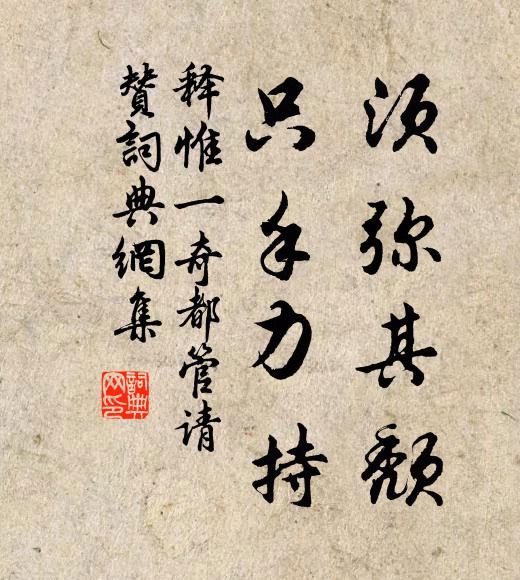 须弥其颓
只手力持
释惟一奇都管请
赞词典網集
詞典
网印